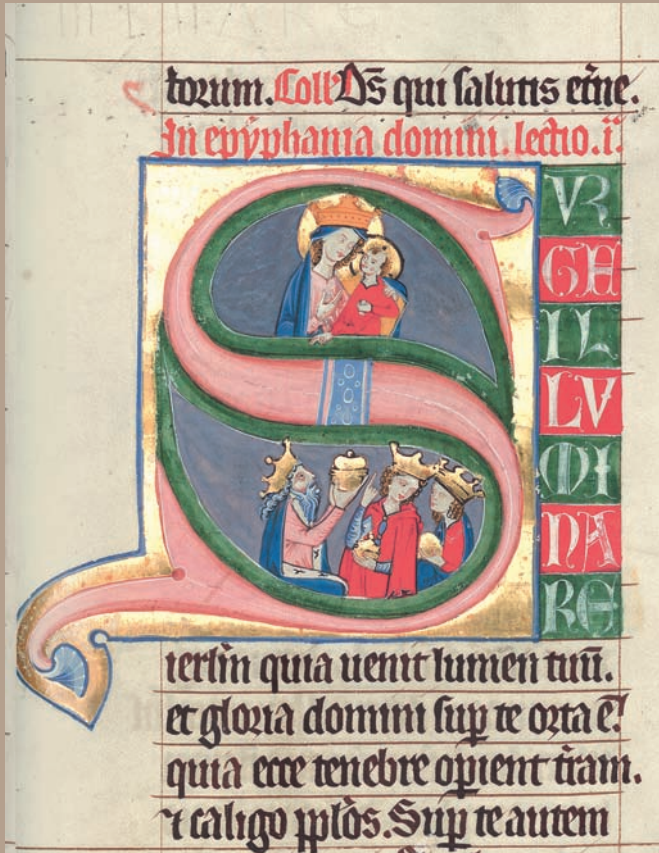 torum. Coll' Ds̄ qui salutis et̄ne.
In epyphania domini. lectio. i.
SUR
GE
IL
LV
MI
NA
RE
ierl̄m quia uenit lumen tuū.
et gloria domini sup te orta ē.
quia ecce tenebre opient t̄ram.
⁊ caligo pplōs. Sup te autem